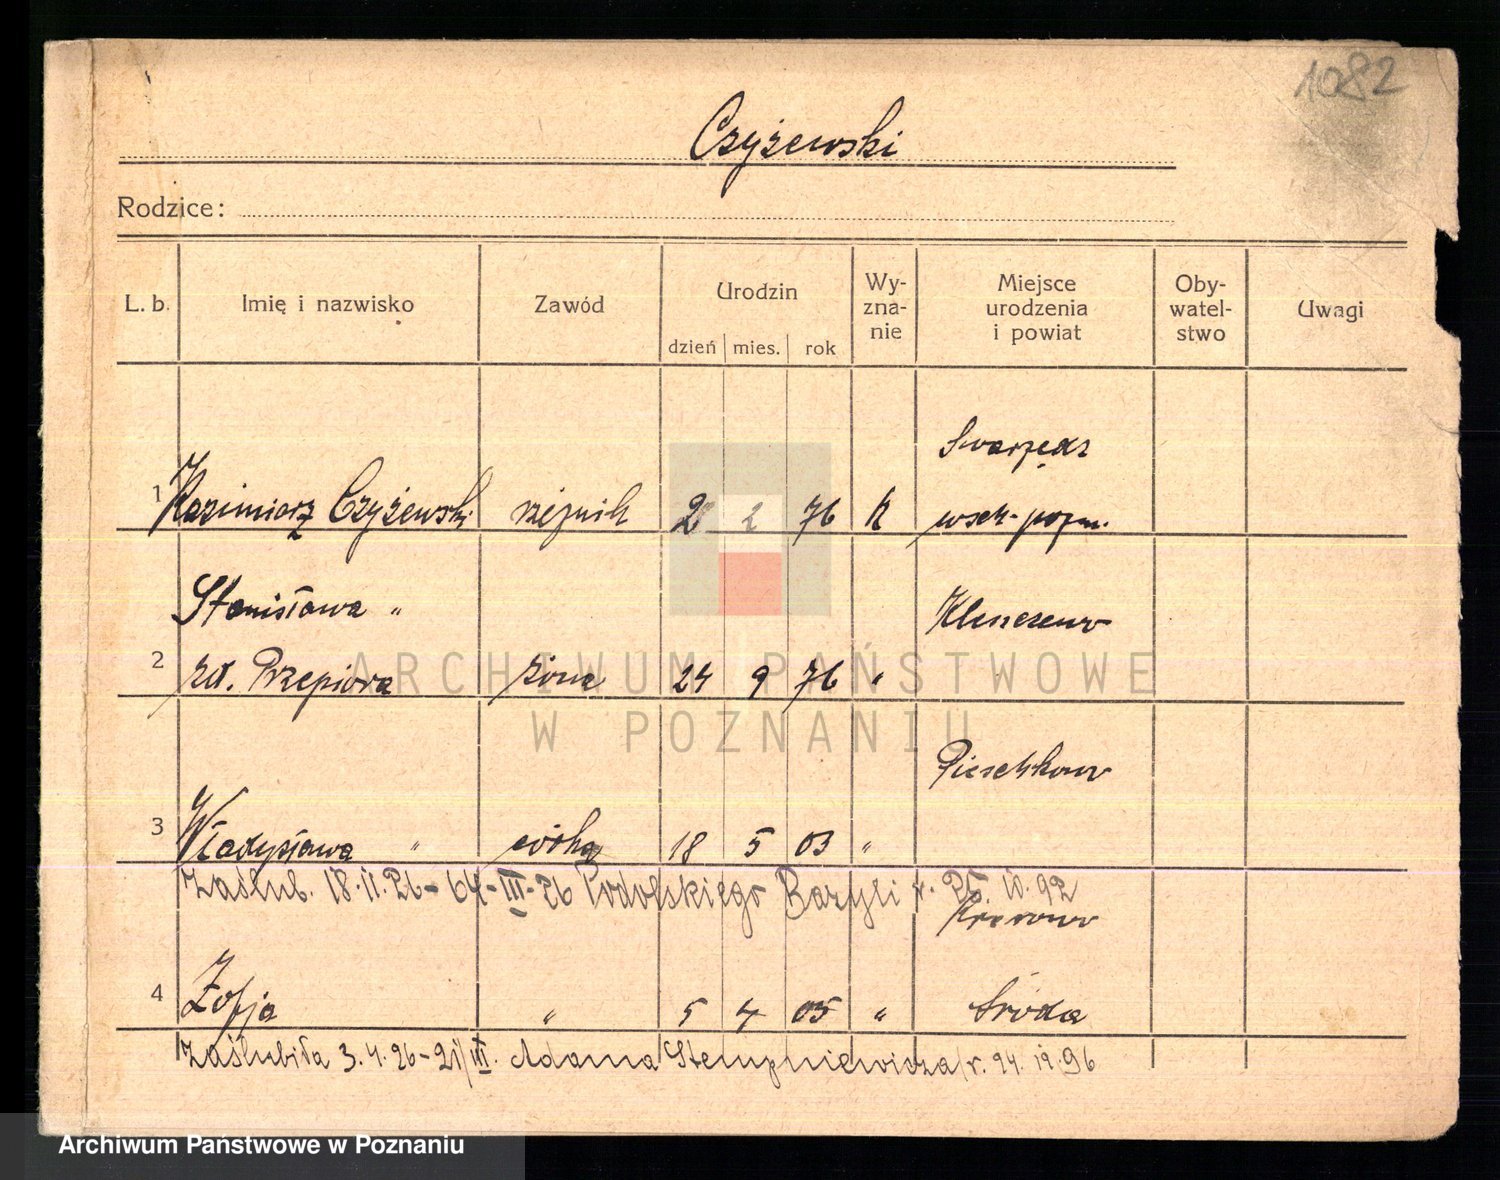 1082
Czyżewski
Rodzice:
L. b. Imię i nazwisko Zawód Urodzin dzień mies. rok Wy-zna-nie Miejsce urodzenia i powiat Oby-watel-stwo Uwagi
Swarzędz
1 Kazimierz Czyżewski rzeźnik 2 2 76 k wsch. pozn.
Stanisława " Kleszczewo
2 zd. Przepióra żona 24 9 76 "
Władysława
3 " córka 18 5 03 "
Zaślub. 18.II.26 - 64-III-26 Podolskiego Bazyli r. 25.10.92
4 Zofja " 5 4 05 " Środa
Zaślubiła 3.4.26 - 21/III. Adama Stempniewicza r. 94.
ARCHIWUM PAŃSTWOWE
W POZNANIU
Archiwum Państwowe w Poznaniu